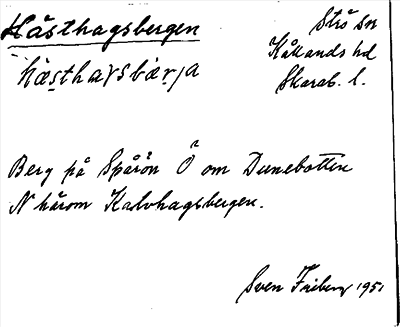 Hästhagsbergen
Strö sn
Kållands hd
Skarab. l.
hæsthaɣsbærja
Berg på Spårön Ö om Dunebotten
N härom Kalvhagsbergen.
Sven Friberg 1951